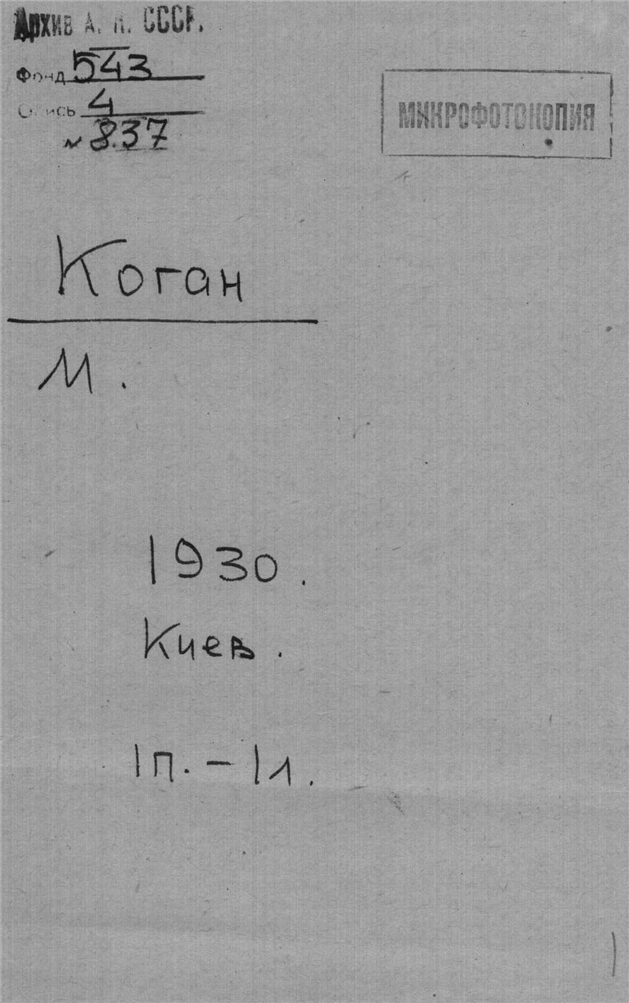 Архив А. Н. СССР.
Фонд 543
Опись 4
№ 837
МИКРОФОТОКОПИЯ
Коган
М.
1930.
Киев.
1п. – 1л.